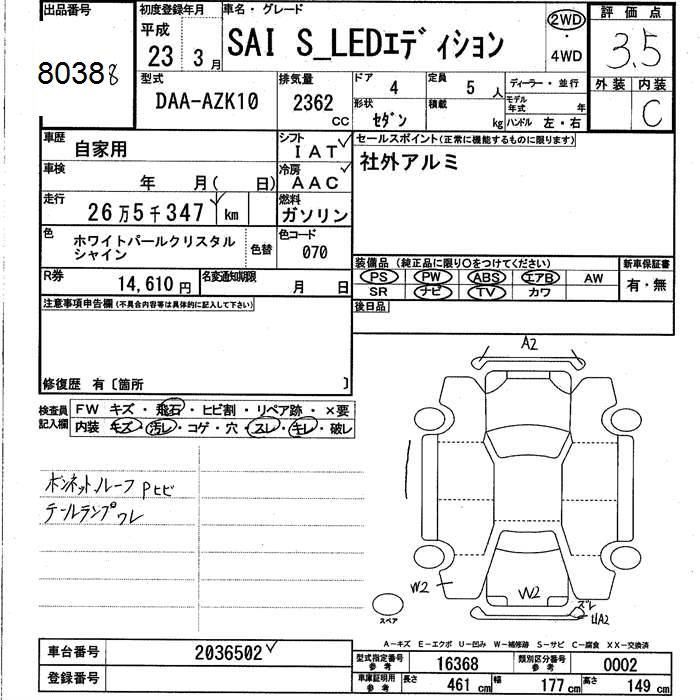 出品番号
80388
初度登録年月
平成
23 3月
車名・グレード
SAI S_LEDエディション
2WD
・
4WD
評価点
3.5
外装 内装
C
型式
DAA-AZK10
排気量
2362
CC
ドア
4
定員
5人
形状
セダン
積載
kg
ディーラー・並行
モデル
年式 年
ハンドル 左・右
車歴
自家用
シフト
IAT
車検
年 月( 日)
冷房
AAC
走行
26万5千347 km
燃料
ガソリン
色
ホワイトパールクリスタル
シャイン
色替
色コード
070
R券
14,610円
名変通知期限
月 日
セールスポイント(正常に機能するものに限ります)
社外アルミ
装備品(純正品に限り○をつけてください)
PS PW ABS エアB AW
SR ナビ TV カワ
新車保証書
有・無
後日品
注意事項申告欄(不具合内容等は具体的に記入して下さい)
修復歴 有〔箇所 〕
検査員
記入欄
FW キズ・飛石・ヒビ割・リペア跡・×要
内装 キズ・汚レ・コゲ・穴・スレ・キレ・破レ
ボンネットルーフ Pヒビ
テールランプワレ
A2
W2
W2
ズレ
UA2
スペア
A－キズ E－エクボ U－凹み W－補修跡 S－サビ C－腐食 XX－交換済
車台番号
2036502
登録番号
型式指定番号
参考
16368
類別区分番号
参考
0002
車庫証明用
参考
長さ 461cm
幅 177cm
高さ 149cm